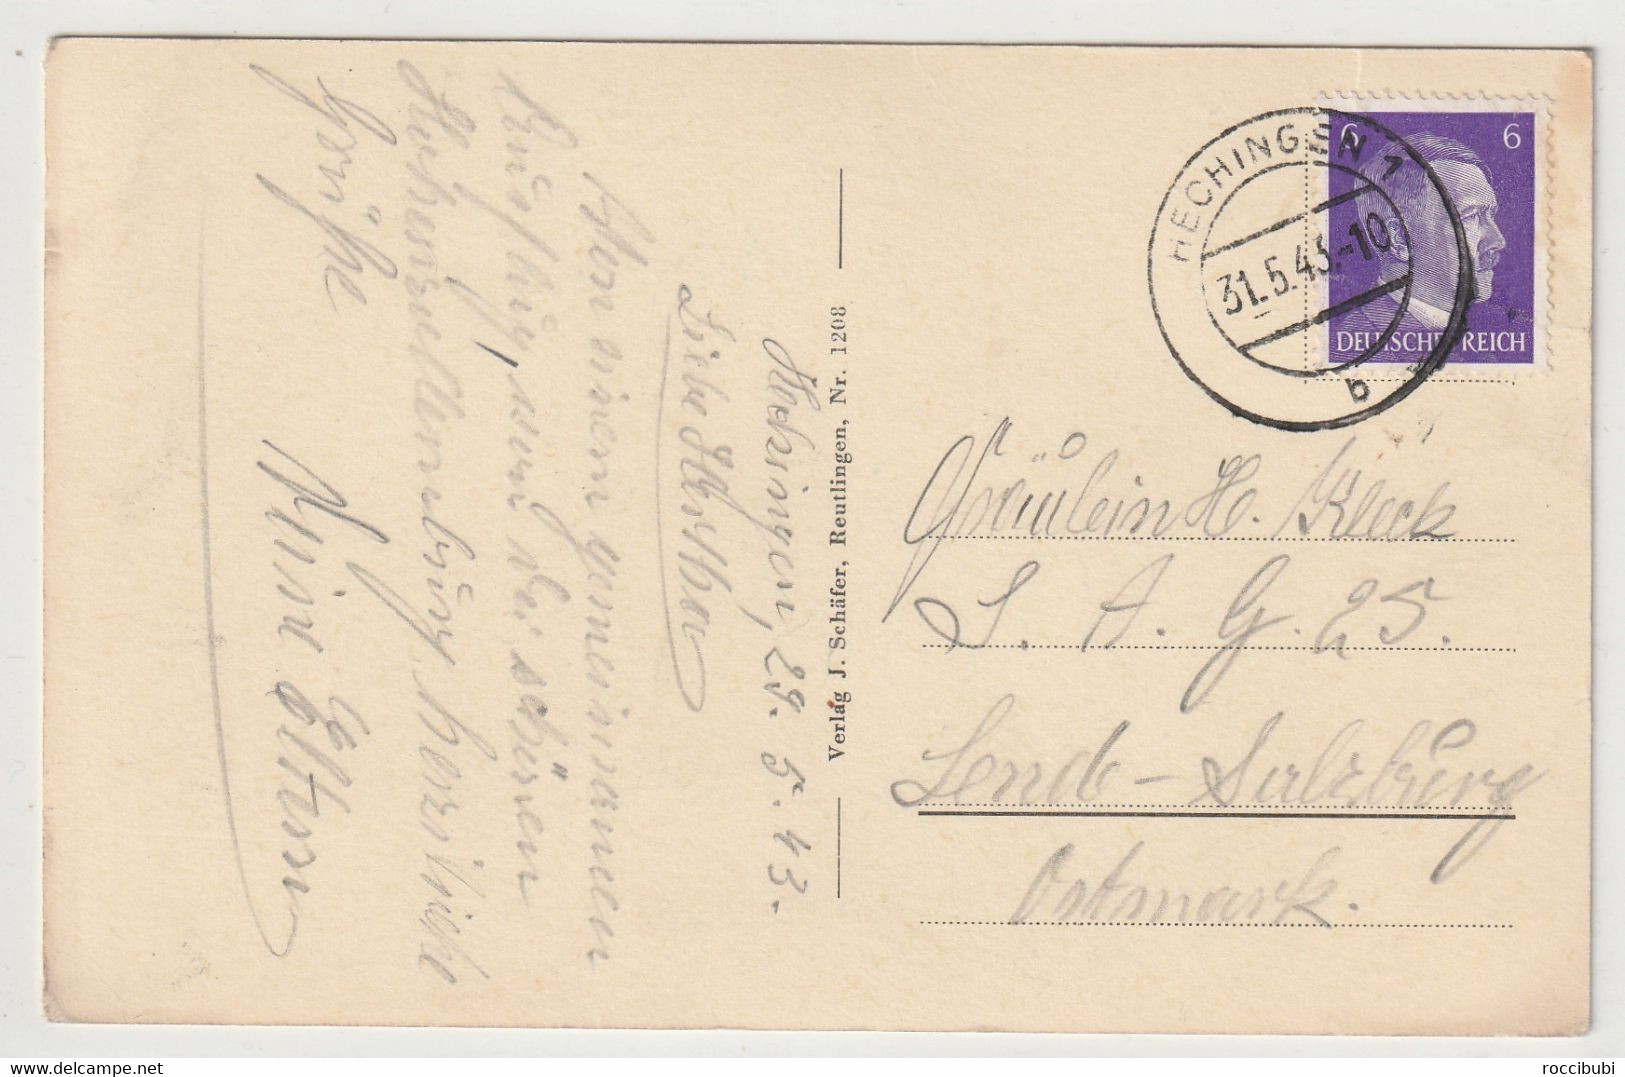 Hechingen, 29. 5. 43.
Liebe Hertha
Von einem gemeinsamen
Ausflug, auf der schönen
Hohenzollernburg herzliche
Grüße
Eltern
Verlag J. Schäfer, Reutlingen, Nr. 1208
HECHINGEN 1
31.5.43.-10
b
6 6
DEUTSCHES REICH
Fräulein H. Kleck
L. A. G. 25.
Lend-Salzburg
Ostmark.
delcampe.net
roccibubi